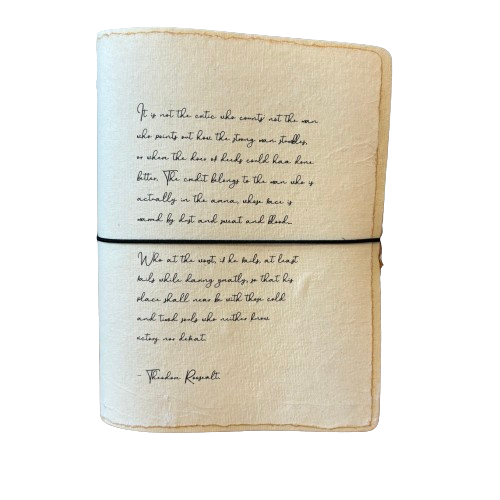 It is not the critic who counts not the man
who points out how the strong man stumbles,
or where the doer of deeds could have done
better. The credit belongs to the man who is
actually in the arena, whose face is
marred by dust and sweat and blood...
Who at the worst, if he fails, at least
fails while daring greatly, so that his
place shall never be with those cold
and timid souls who neither know
victory nor defeat.
- Theodore Roosevelt